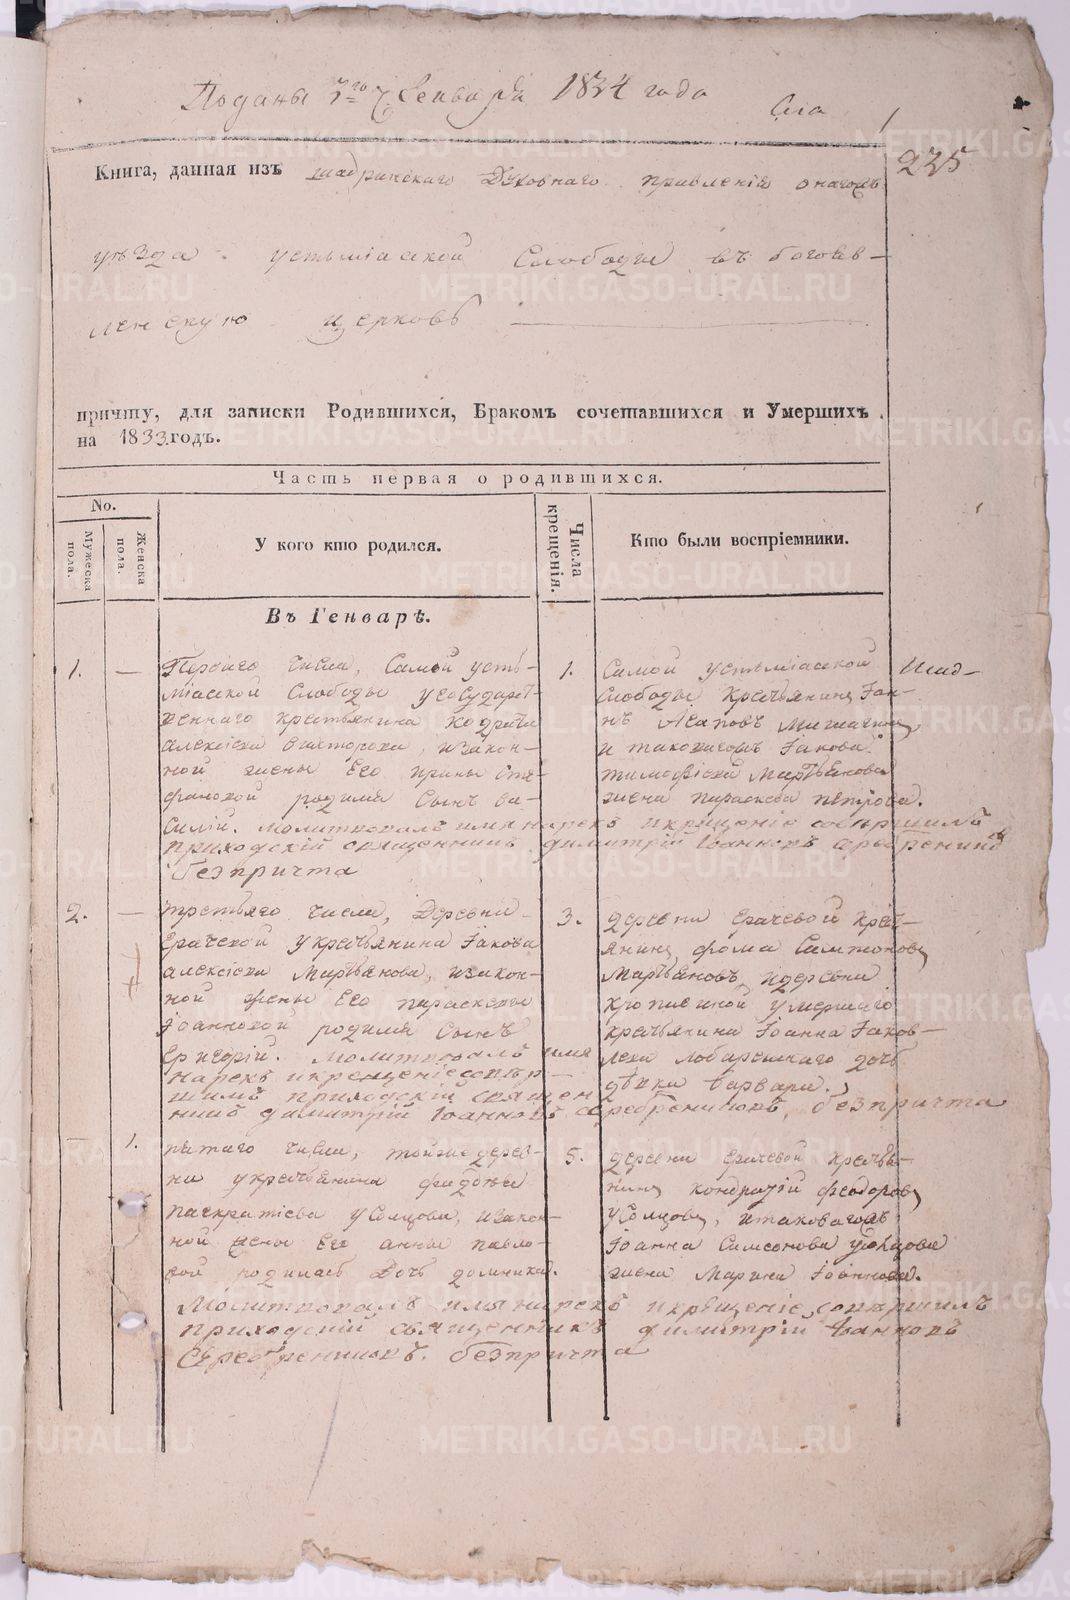 Поданы 7го Генваря 1834 года
225
Книга, данная изъ шадринскаго Духовнаго правленія онагожъ
уѣзда устьміаской Слободы въ богояв-
ленскую церковь
причту, для записки Родившихся, Бракомъ сочетавшихся и Умершихъ
на 1833 годъ.
Часть первая о родившихся.
No.
Мужеска пола.
Женска пола.
У кого кто родился.
Числа крещенія.
Кто были воспріемники.
Въ Генварѣ.
1.
—
Перваго числа, Самой усть-
міаской Слободы у государст-
веннаго крестьянина Кодрата
алексіева, изакон-
ной жены Его ирины Сте-
фановой родился Сынъ ва-
силій. молитвовалъ имя нарекъ икрещеніе совершилъ
приходскій священникъ димитрій Іанновъ серебрениковъ
безпричта
1.
Самой устьміаской
Слободы Крестьянинъ Іан-
нъ Агаповъ
и таковагожъ Іакова
тимофіева Мартьянова
жена параскева петрова.
Шад-
2.
—
третьяго числа, Деревни
Ерачевой укрестьянина Іакова
алексіева Мартьянова, изакон-
ной жены Его параскевы
Іоанновой родился Сынъ
Григорій. молитвовалъ имя
нарекъ икрещеніе совер-
шилъ приходскій священ
никъ димитрій Іанновъ серебрениковъ, безпричта
3.
деревни Ерачевой крест-
янинъ фома Самсоновъ
Мартьяновъ, идеревни
кропивиной умершаго
крестьянина Іоанна Іаков-
лева дочь
дѣвка варвара.
—
1.
пятаго числа, тойже дерев-
ни укрестьянина
панкратіева усолцова, изакон-
ной жены Его анны павло-
вой родилась Дочь домника.
Молитвовалъ имя нарекъ икрещеніе совершилъ
приходскій священникъ димитрій Іанновъ
Серебрениковъ. безпричта
5.
деревни Ерачевой крестья-
нинъ кондратій феодоровъ
усолцовъ, итаковагожъ
Іоанна Симеонова усолцова
жена Марина Іоаннова.
METRIKI.GASO-URAL.RU